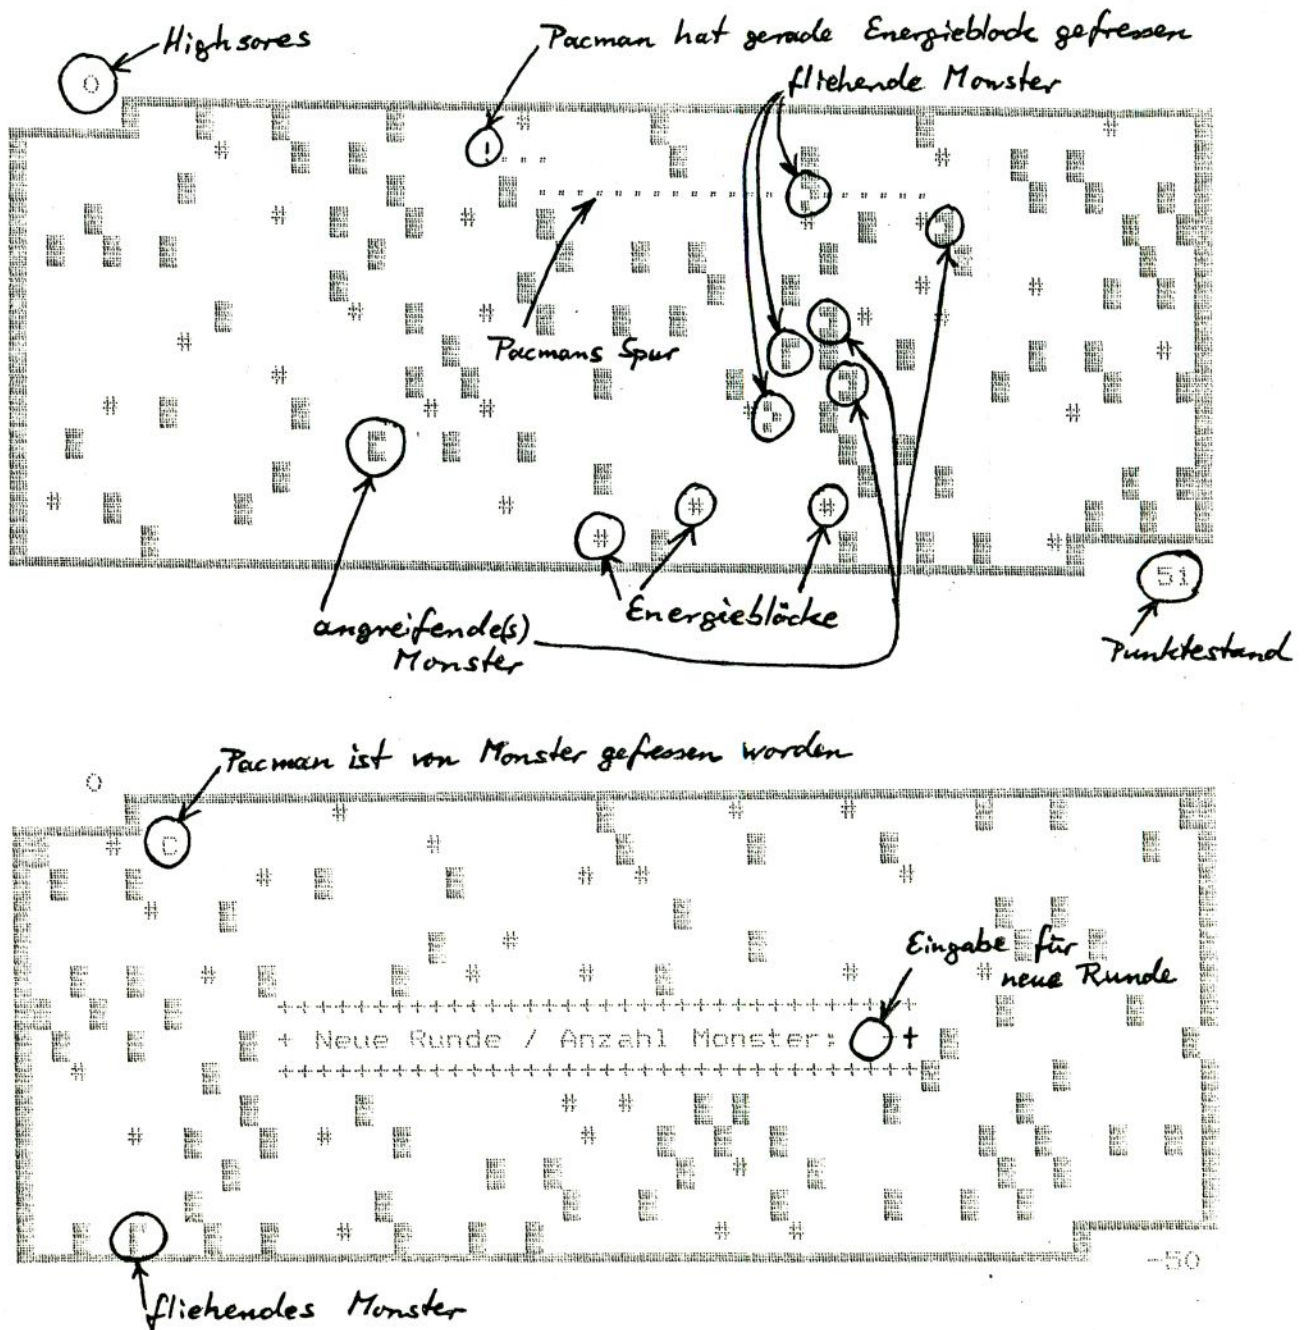 Highsores
Pacman hat gerade Energieblock gefressen
0
fliehende Monster
Pacmans Spur
angreifende(s)
Monster
Energieblöcke
51
Punktestand
Pacman ist von Monster gefressen worden
0
C
Eingabe für
neue Runde
+++++++++++++++++++++++++++++++++++
+ Neue Runde / Anzahl Monster: +
+++++++++++++++++++++++++++++++++++
-50
fliehendes Monster